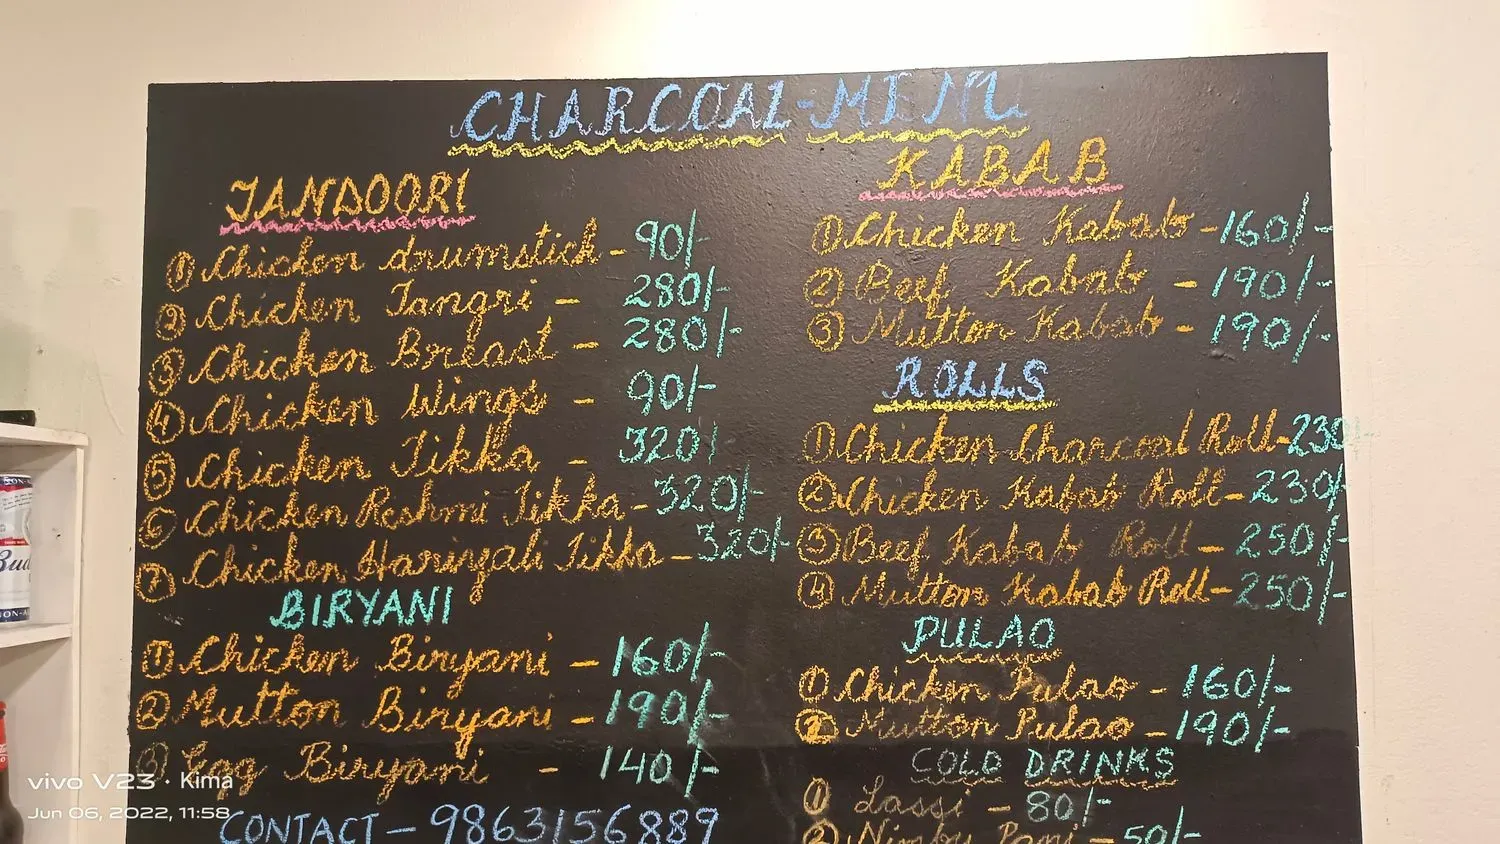 CHARCOAL-MENU
TANDOORI
① Chicken drumstick - 90/-
② Chicken Tangri - 280/-
③ Chicken Breast - 280/-
④ Chicken Wings - 90/-
⑤ Chicken Tikka - 320/
⑥ Chicken Reshmi Tikka - 320/-
⑦ Chicken Hariyali Tikka - 320/-
BIRYANI
① Chicken Biryani - 160/-
② Mutton Biryani - 190/-
③ Egg Biryani - 140/-
CONTACT - 9863156889
KABAB
① Chicken Kabab - 160/-
② Beef Kabab - 190/-
③ Mutton Kabab - 190/-
ROLLS
① Chicken Charcoal Roll - 230/-
② Chicken Kabab Roll - 230/-
③ Beef Kabab Roll - 250/-
④ Mutton Kabab Roll - 250/-
PULAO
① Chicken Pulao - 160/-
② Mutton Pulao - 190/-
COLD DRINKS
① Lassi - 80/-
② Nimbu Pani - 50/-
vivo V23 · Kima
Jun 06, 2022, 11:58